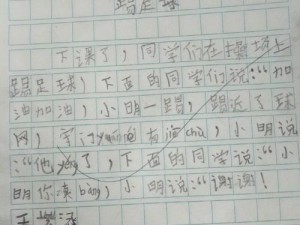 踢足球
下课了，同学们在操场上
踢足球，下面的同学们说：“加
油加油，小明一踢，踢近了球
网，守门员
有
chū，小明说
：“他
了，下面的同学说：“小
明你真bàng，小明说：“谢谢！